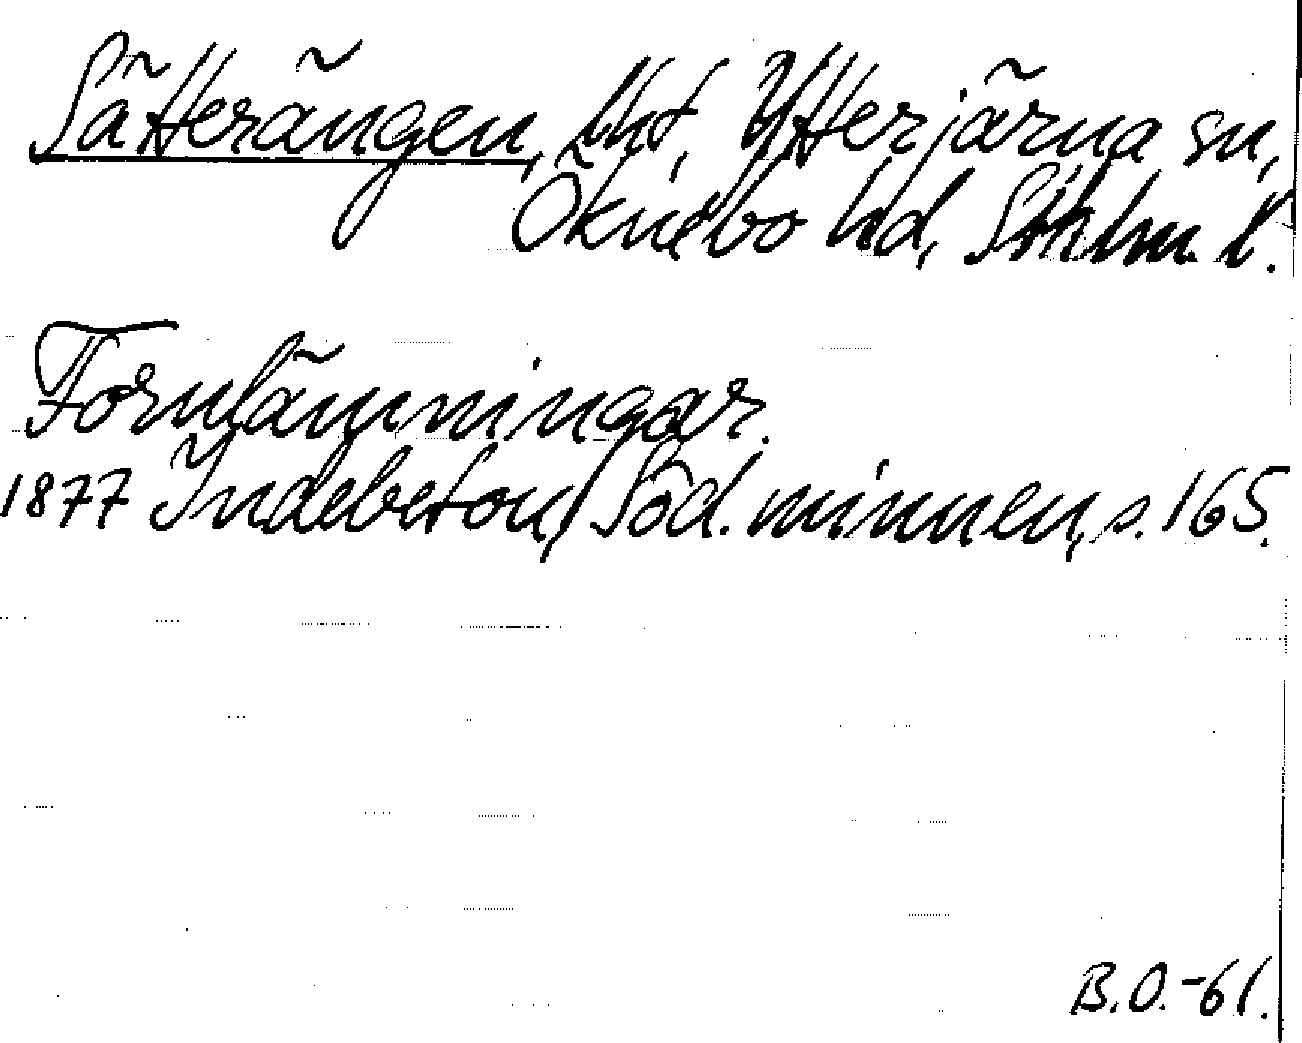 Sätterängen, lht, Ytterjärna sn,
Öknebo hd, Sthlm. l.
Fornlämningar.
1877 Indebetou, Söd. minnen, s. 165.
B.O.-61.